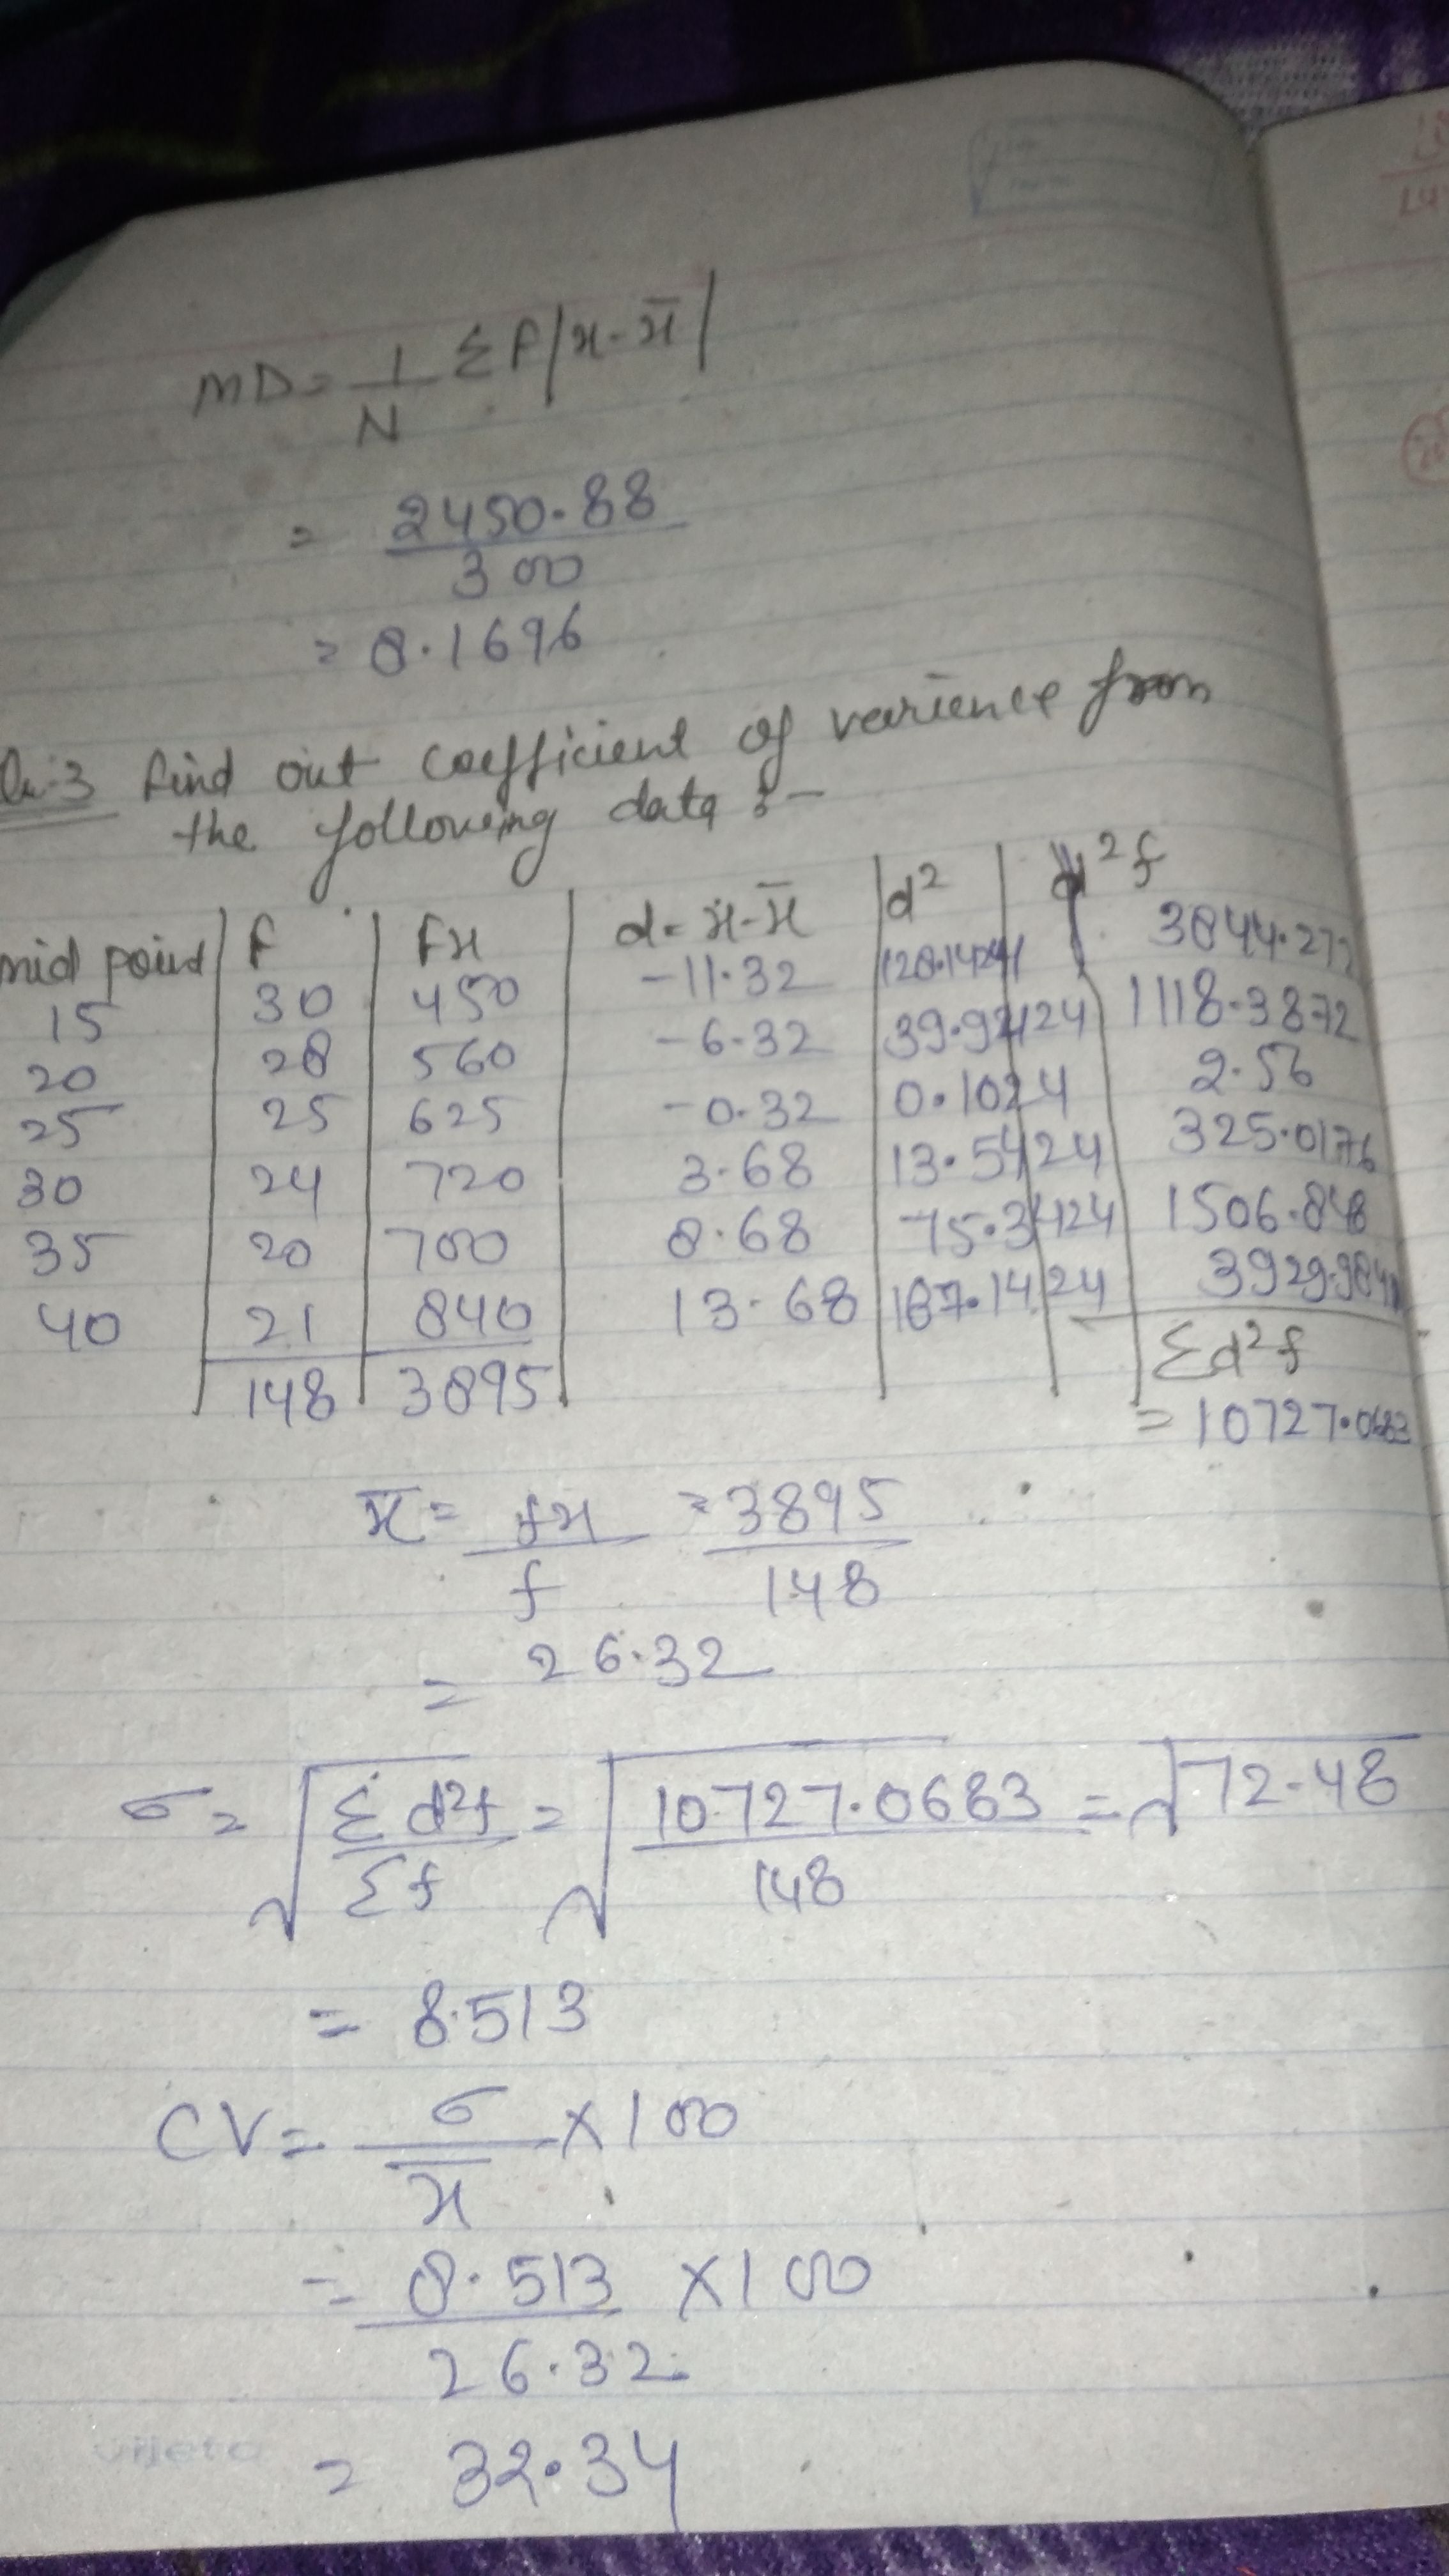 MD = 1/N Σf|x-x̄|
= 2450.88/300
= 8.1696
Qu.3 find out coefficient of varience from
the following data :-
mid point | f | fx | d = x-x̄ | d² | d²f
15 | 30 | 450 | -11.32 | 128.1424 | 3844.272
20 | 28 | 560 | -6.32 | 39.92424 | 1118.3872
25 | 25 | 625 | -0.32 | 0.1024 | 2.56
30 | 24 | 720 | 3.68 | 13.5424 | 325.0176
35 | 20 | 700 | 8.68 | 75.3424 | 1506.848
40 | 21 | 840 | 13.68 | 187.1424
148 | 3895 | Σd²f
= 10727.0683
x̄ = fx/f = 3895/148
= 26.32
σ = √(Σd²f/Σf) = √(10727.0683/148) = √72.48
= 8.513
CV = σ/x̄ × 100
= 8.513/26.32 × 100
= 32.34
vijeta